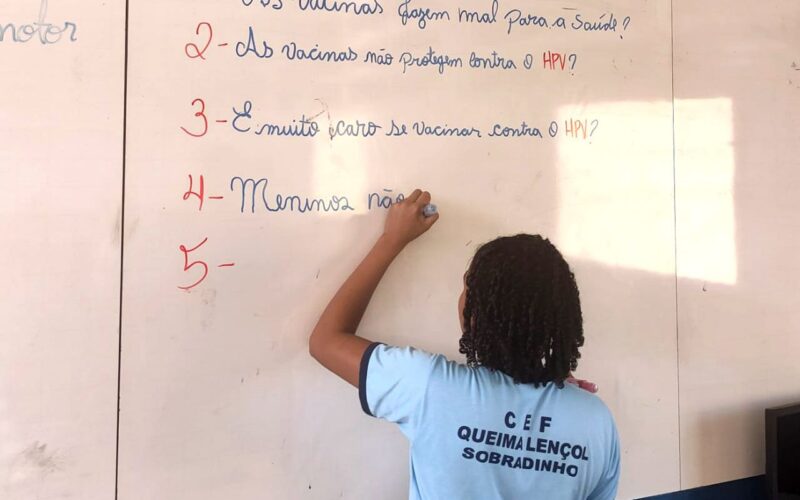 notor
vacinas fazem mal para a saúde?
2- As vacinas não protegem contra o HPV?
3- É muito caro se vacinar contra o HPV?
4- Meninos não
5-
CEF
QUEIMA LENÇOL
SOBRADINHO